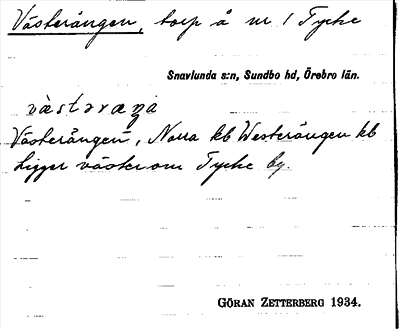 Västerängen, torp å nr 1 Tycke
Snavlunda s:n, Sundbo hd, Örebro län.
västəræŋa
Västerängen, Norra kb Westerängen kb
Ligger väster om Tycke by.
GÖRAN ZETTERBERG 1934.